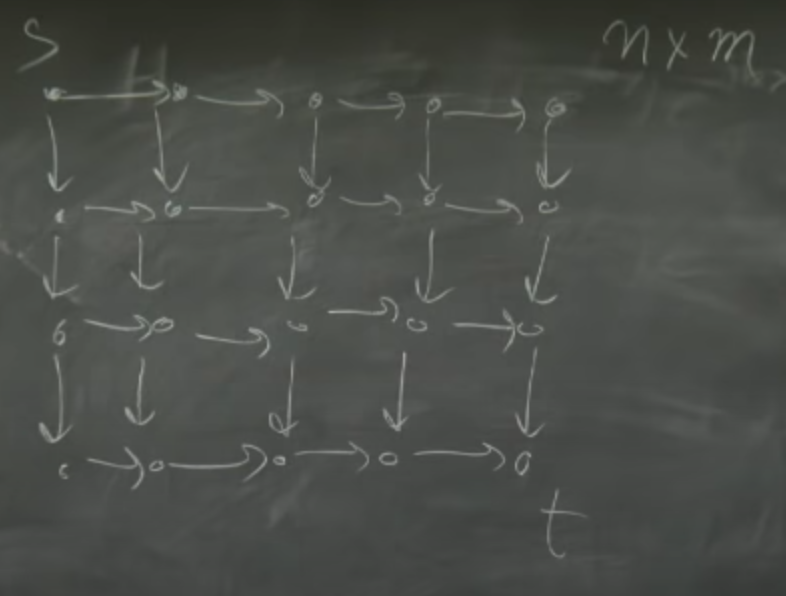 S
n x m
t